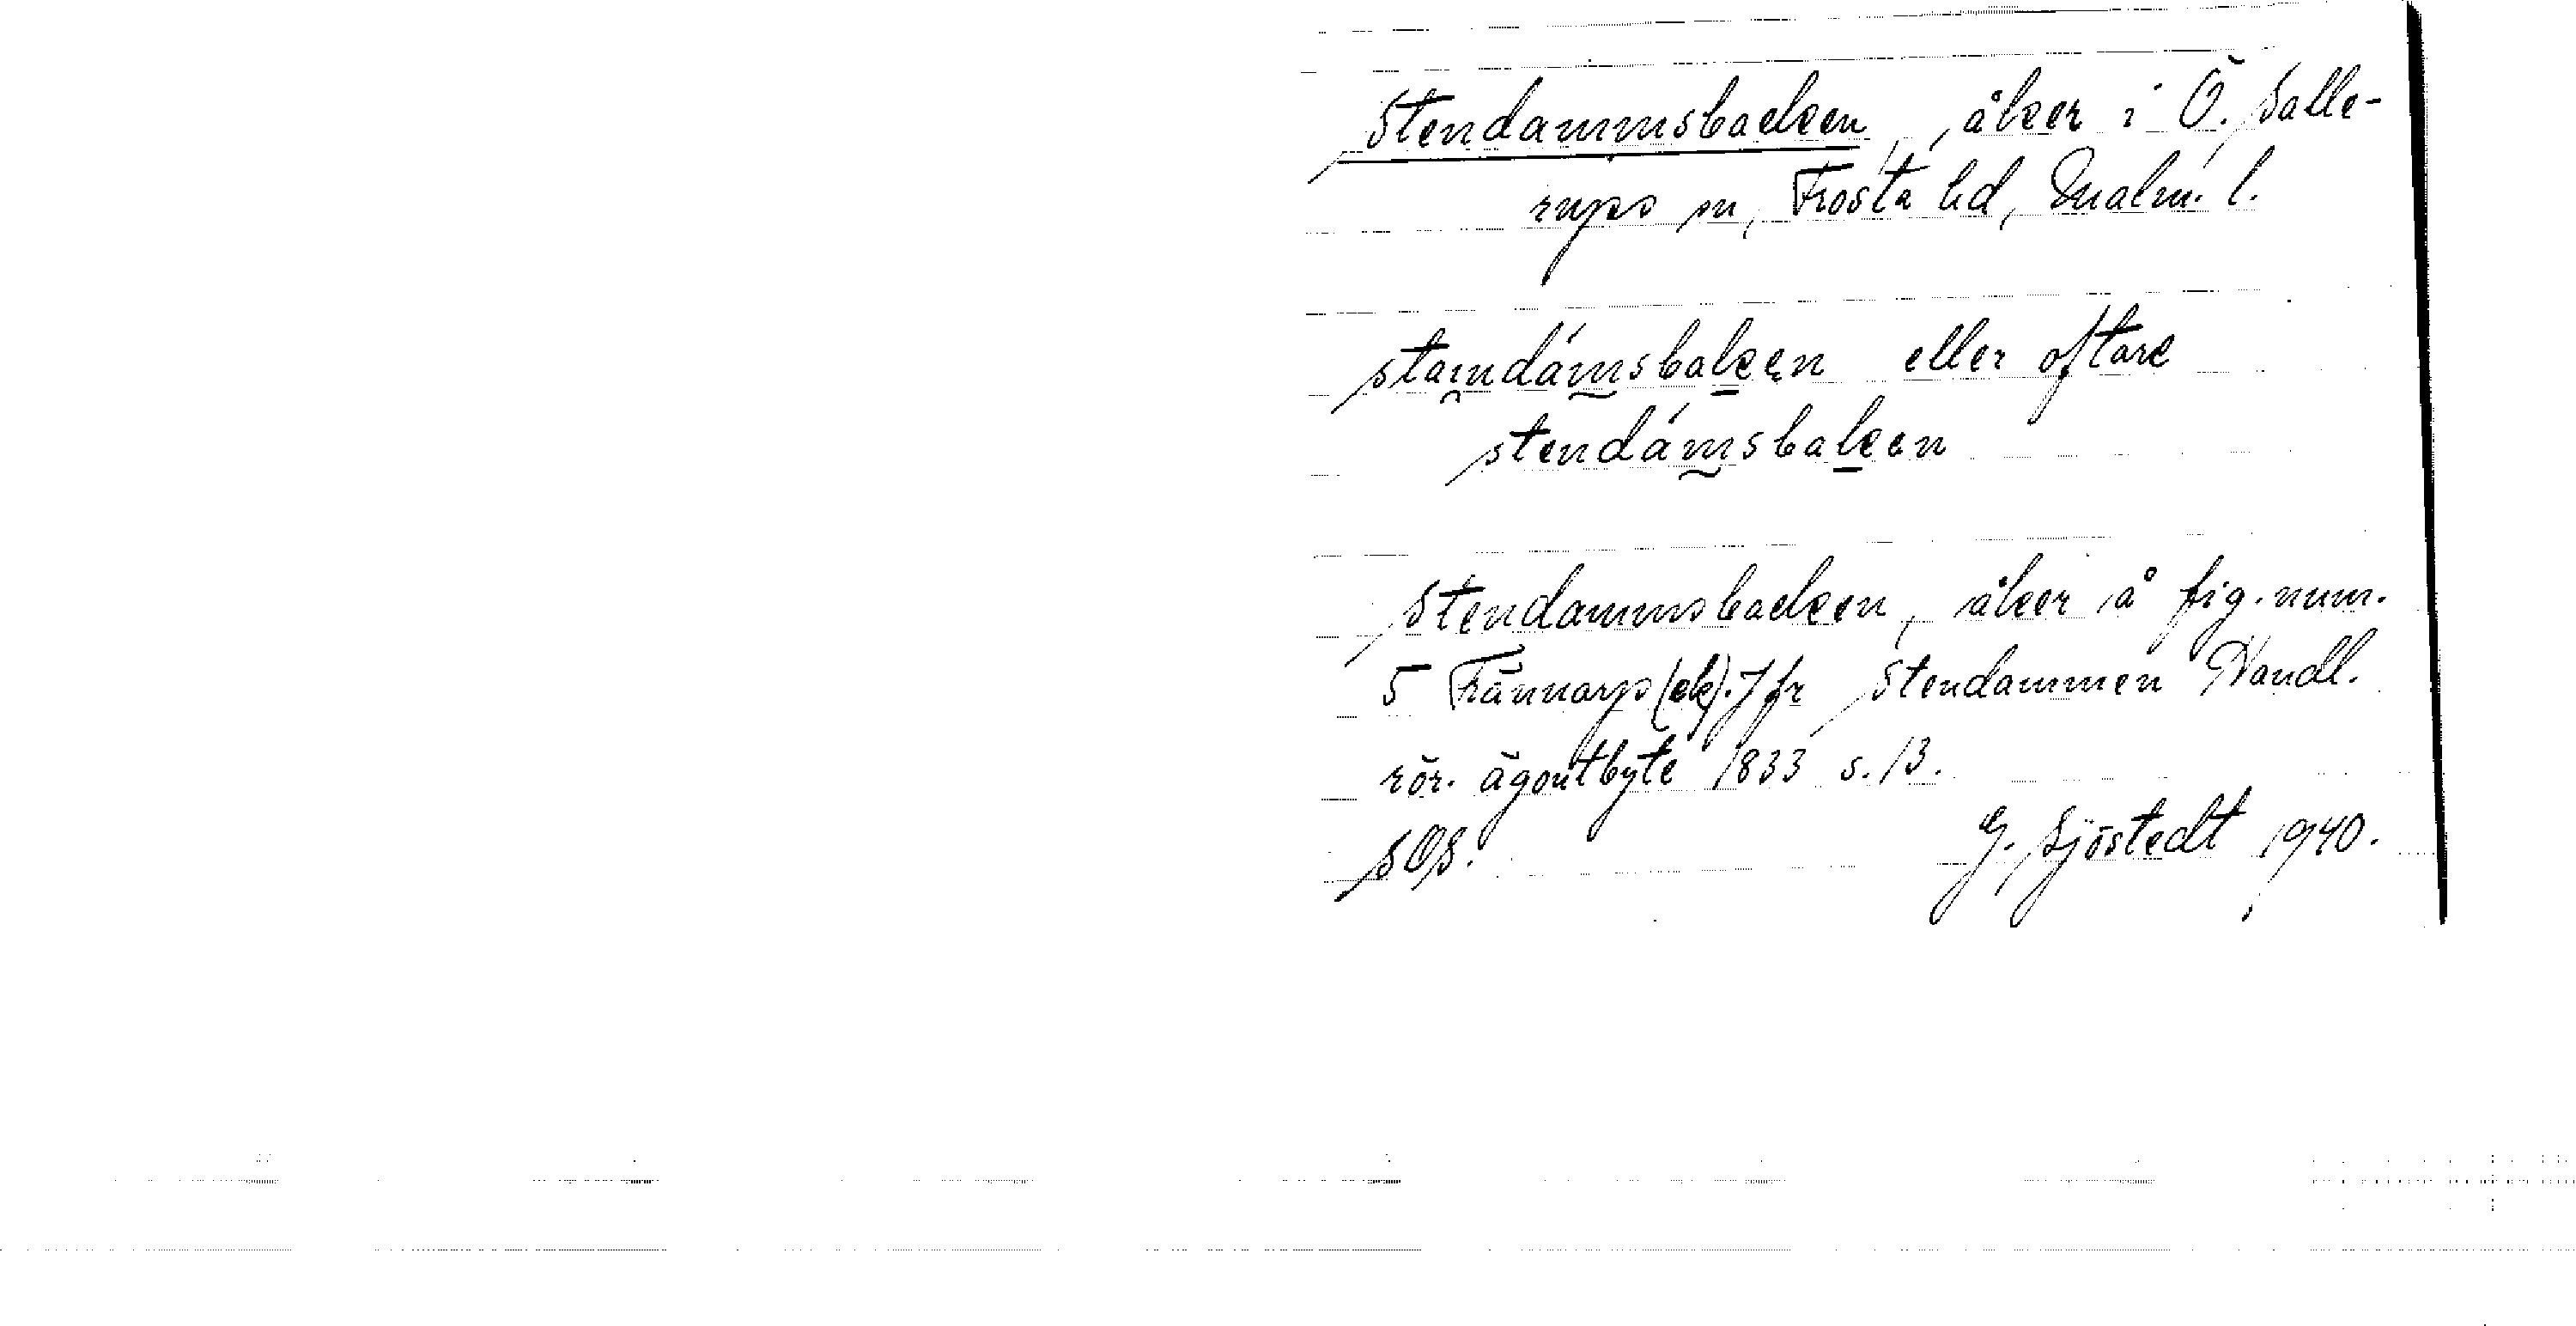 Stendammsbacken, åker i Ö. Salle-
rups sn, Frosta hd, Malm. l.
staindámsbaken eller oftare
stendámsbaken
Stendammsbacken, åker å fig. num.
5 Fännarps (ek). Jfr Stendammen Handl.
rör. ägoutbyte 1833 s. 13.
SOS. G. Sjöstedt 1940.